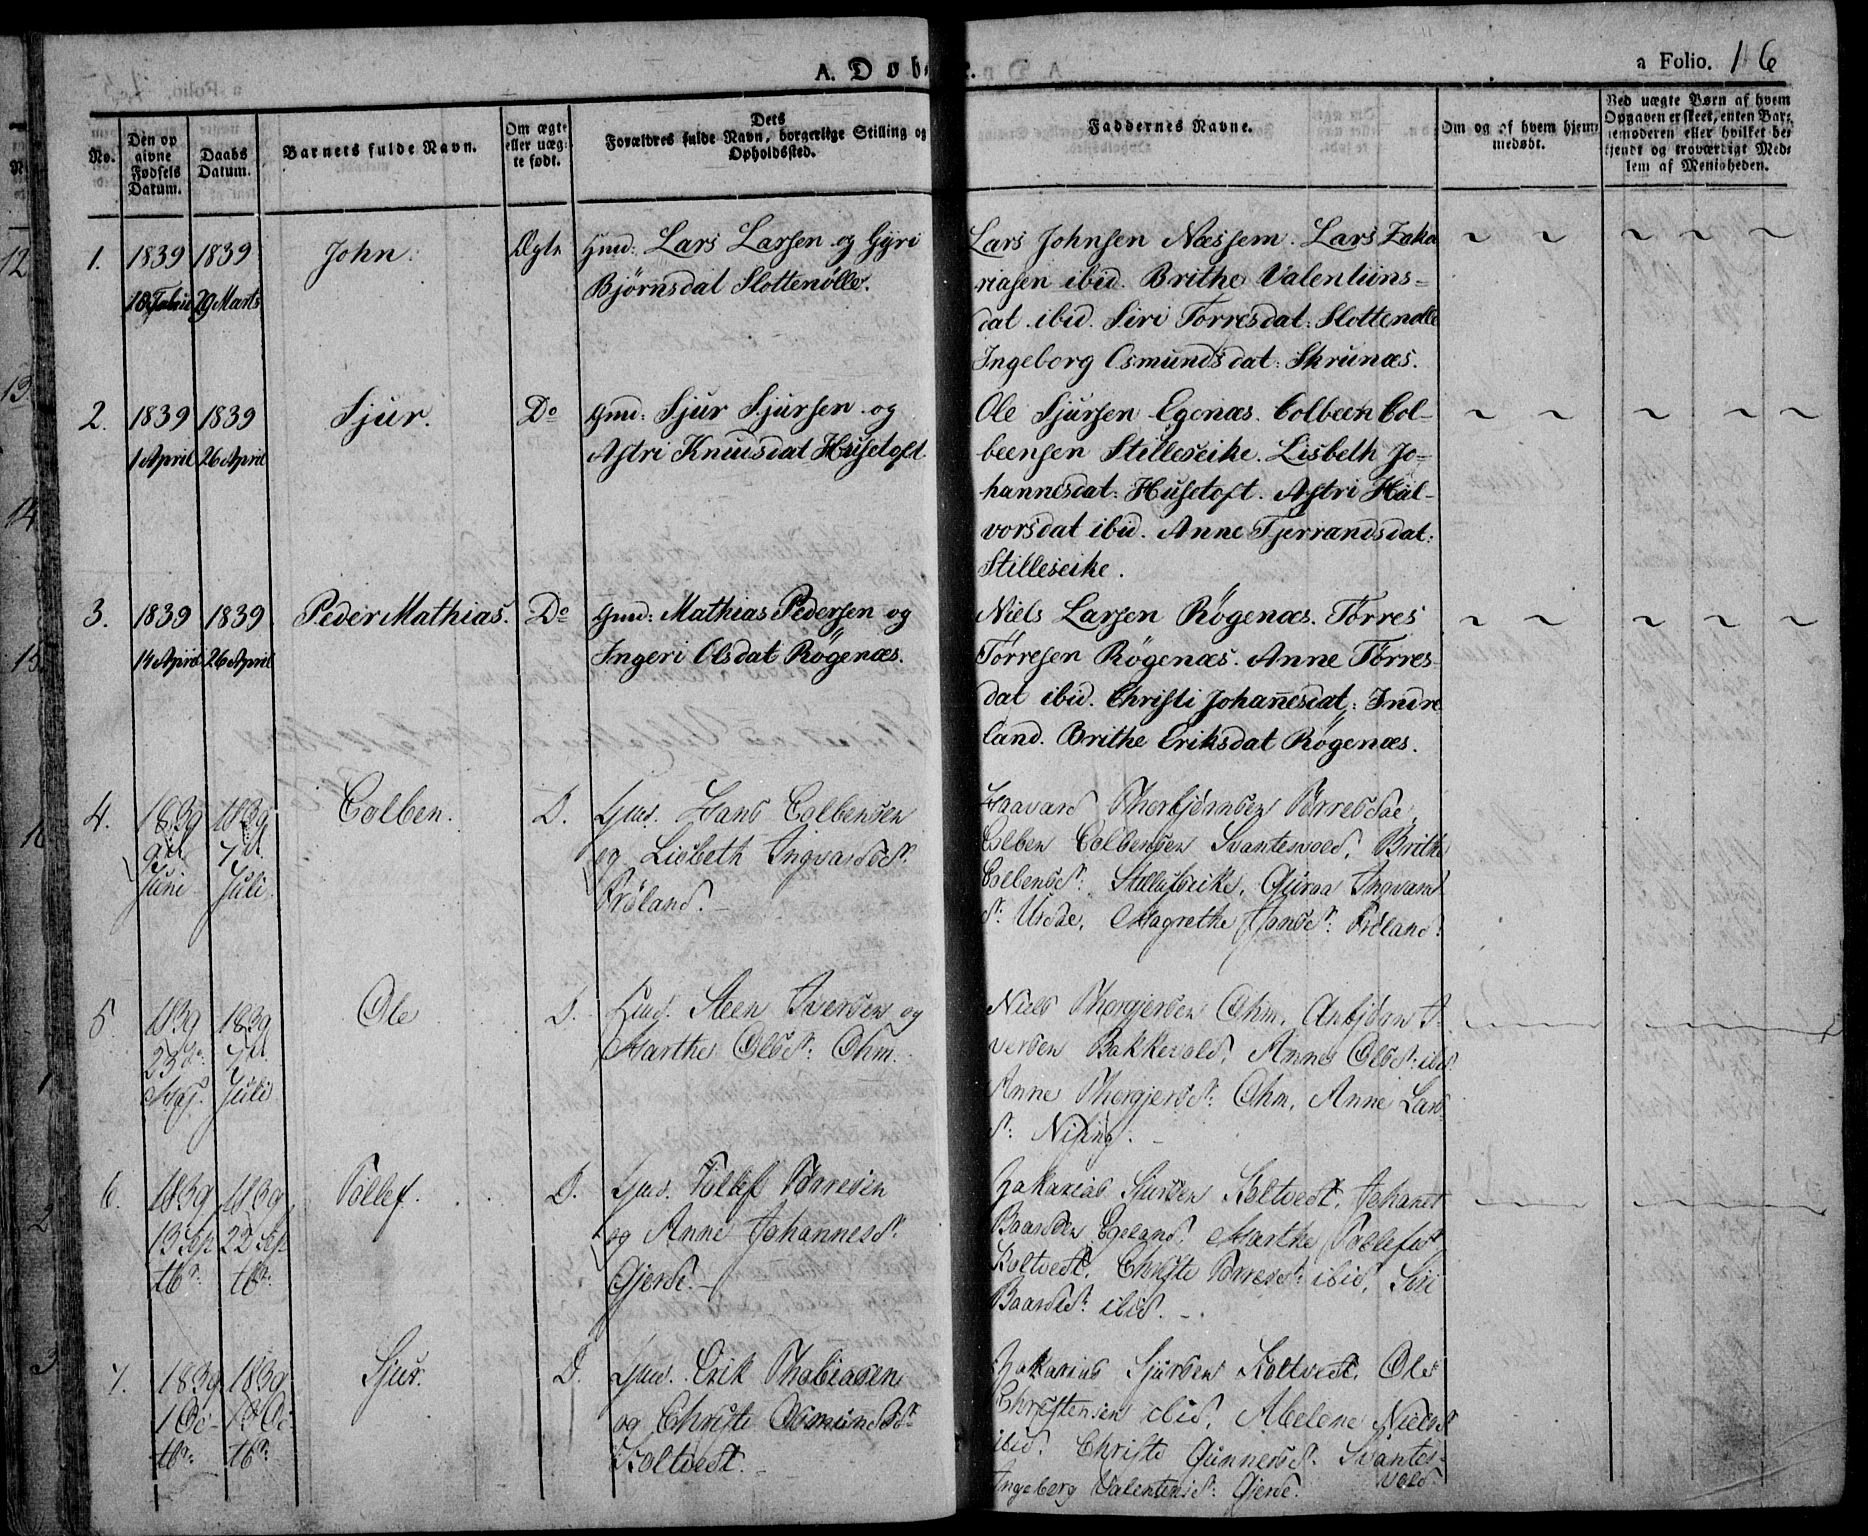 A. Døb
a Folio. 16
No.
Den op
givne
Fødsels
Datum.
Daabs
Datum.
Barnets fulde Navn.
Om ægte
eller uæg-
te født.
Dets
Forældres fulde Navn, borgerlige Stilling og
Opholdssted.
Faddernes Navne.
Om og af hvem hjem
medøbt.
Ved uægte Børn af hvem
Opgaven er skeet, enten Bar-
nemoderen eller hvilket be
kjendt og troværdigt Med-
lem af Menigheden.
1. 1839 1839 John. Ægte Gmd: Lars Larsen og Gyri
18 Febru 29 Marts Bjørnsdat Slottenølle.
Lars Johnsen Næssem. Lars Zaka
riasen ibid. Brithe Valentiins=
dat ibid. Siri Torresdat: Slottenølle
Ingeborg Osmundsdat: Skrunæs.
2. 1839 1839 Sjur. Do Gmd: Sjur Sjursen og
1 April 26 April Astri Knudsdat Husetoft.
Ole Sjursen Egenæs. Colbeen Col-
beensen Stilleseike. Lisbeth Jo=
hannesdat: Husetoft. Astri Hal-
vorsdat ibid. Anne Tjerrandsdat:
Stilleseike.
3. 1839 1839 Peder Mathias. Do Gmd: Mathias Pedersen og
14 April 26 April Ingeri Olsdat Røgenæs.
Niels Larsen Røgenæs. Tørres
Tørresen Røgenæs. Anne Tørres-
dat ibid. Christi Johanesdat: Indre
land. Brithe Eriksdat Røgenæs.
4. 1839 1839 Colben. D. Gmd. Hans Colbensen
9d 7d og Lisbeth Ingvarsd.
Juni Juli Frøland.
Haavard Thorbjørnsen Tørresdae,
Colben Colbensen Svantevold, Brithe
Colbensd: Stilleseike, Guroa Ingvars
d: Ursdae, Magrethe Hansd: Frøland.
5. 1839 1839 Ole D. Gmd. Steen Iversen og
23de 7d Marthe Olsd: Ohm.
Maj. Juli
Niels Thorgjersen Ohm, Anbjørn I-
versen Bakkevold, Anne Olsd: ibid
Anne Thorgjersd: Ohm, Anne Lars
d: Nising.
6. 1839 1839 Tollef. D. Gmd. Tollef Tørresen
13 Sep 22 Sep og Anne Johannesd.
tbr. tbr. Gjerde.
Zakarias Sjursen Koltvedt, Johanes
Baardsen Egeland, Marthe Tollefsd
Koltvedt, Christi Tørresd: ibid, Siri
Baardsd: ibid.
7. 1839 1839 Sjur. D. Gmd. Erik Thobiasen
1 Oc- 13 Oc- og Christi Osmundsd:
tbr. tbr. Koltvedt.
Zakarias Sjursen Koltvedt, Ole
Christensen ibid, Abelene Nielsd
ibid. Christi Gunnersd. Svantes-
Ingeborg Valentinsd: Gjerde. vold